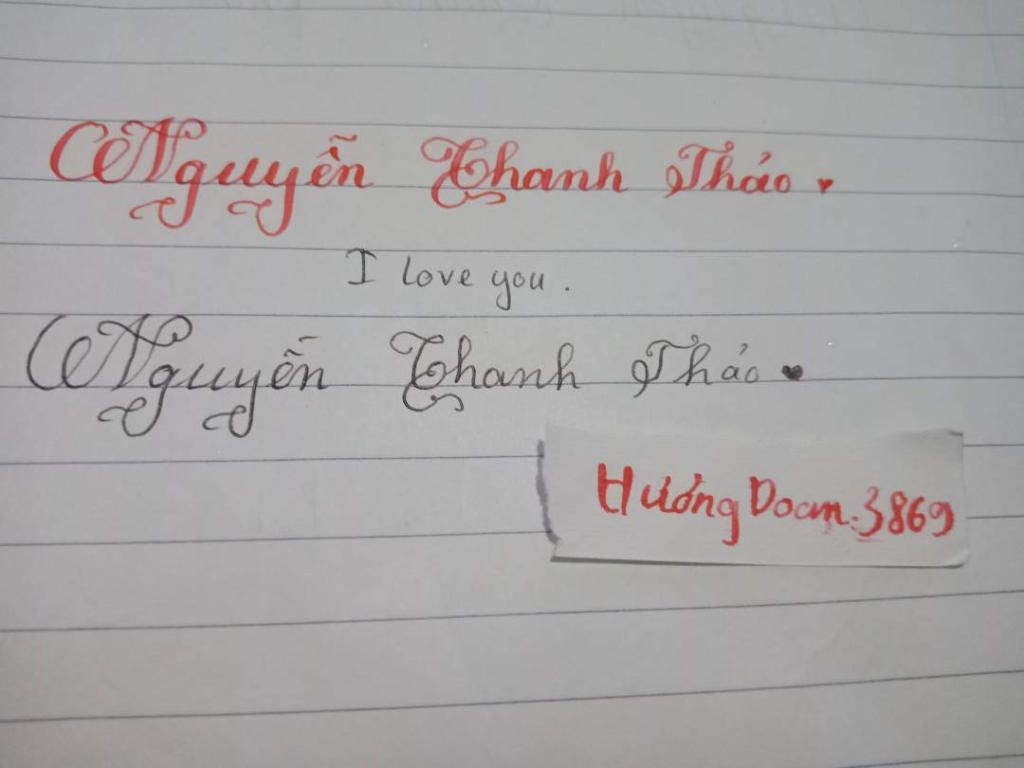 Nguyễn Thanh Thảo
I love you.
Nguyễn Thanh Thảo
Hương Doan.3869